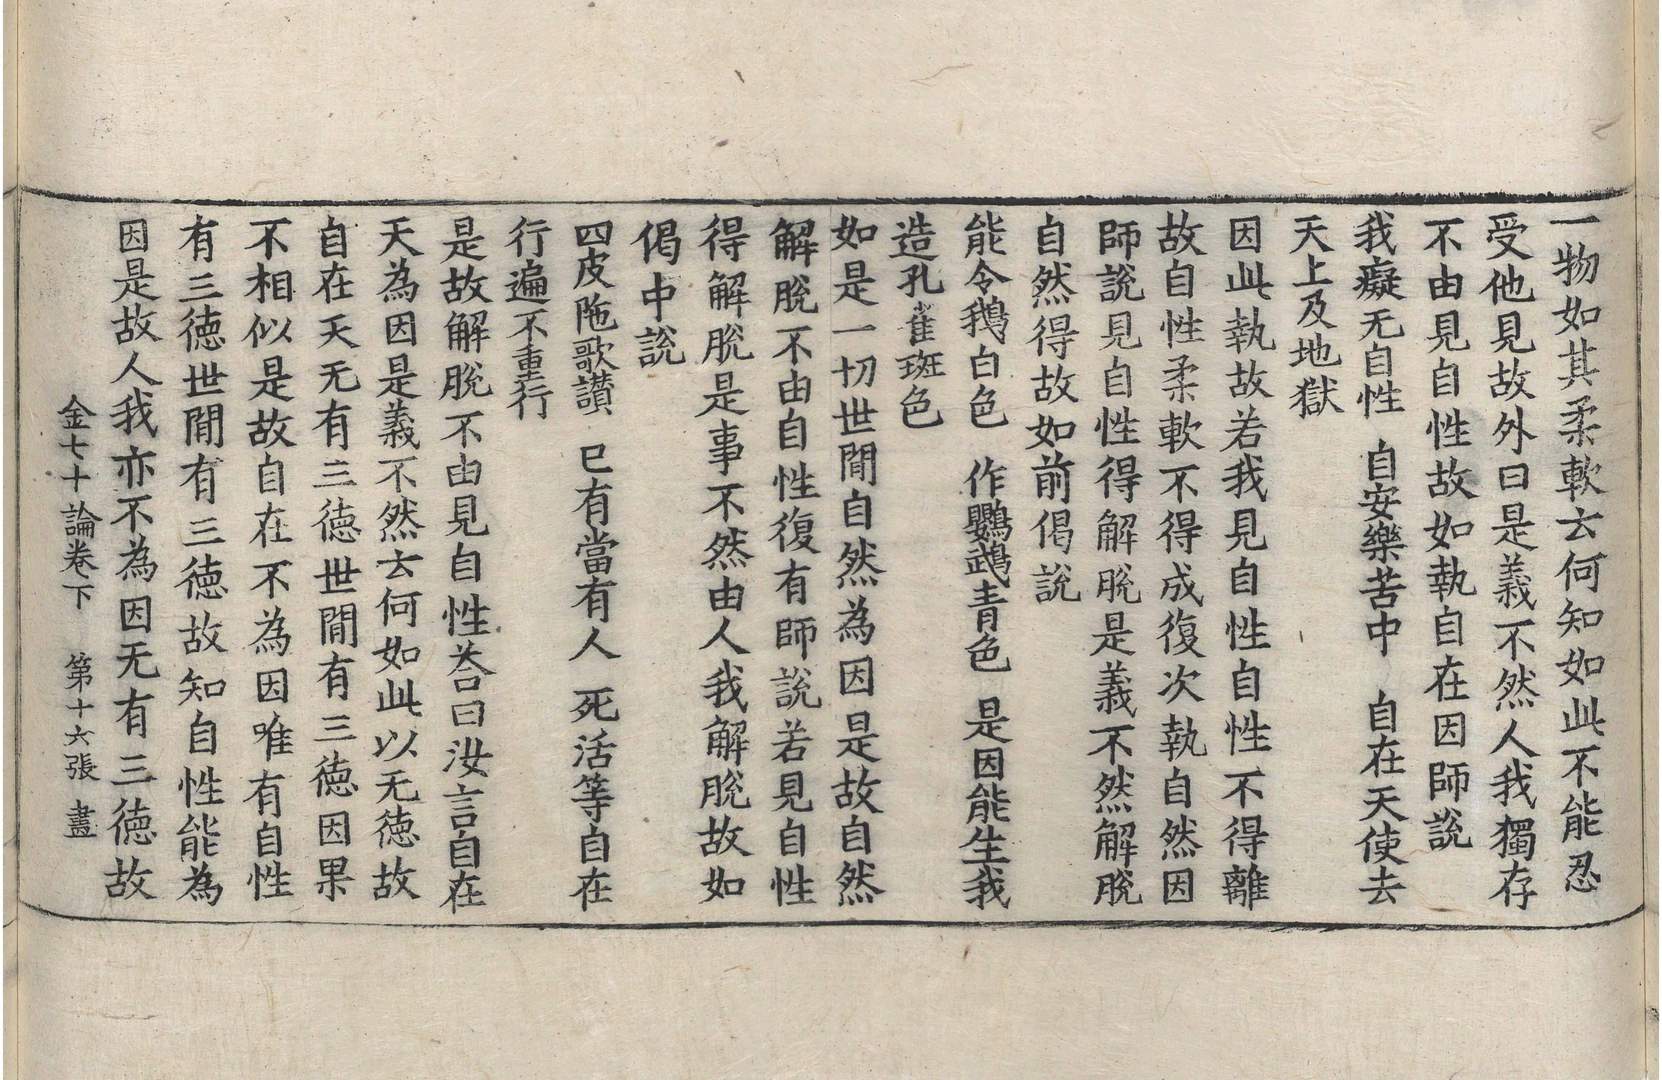 一物如其柔軟云何知如此不能忍
受他見故外曰是義不然人我獨存
不由見自性故如執自在因師說
我癡无自性　自安樂苦中　自在天使去
天上及地獄
因此執故若我見自性自性不得離
故自性柔軟不得成復次執自然因
師說見自性得解脫是義不然解脫
自然得故如前偈說
能令鵝白色　作鸚鵡青色　是因能生我
造孔雀斑色
如是一切世間自然為因是故自然
解脫不由自性復有師說若見自性
得解脫是事不然由人我解脫故如
偈中說
四皮陁歌讃　已有當有人　死活等自在
行遍不重行
是故解脫不由見自性荅曰汝言自在
天為因是義不然云何如此以无德故
自在天无有三德世間有三德因果
不相似是故自在不為因唯有自性
有三德世間有三德故知自性能為
因是故人我亦不為因无有三德故
金七十論卷下　第十六張　晝